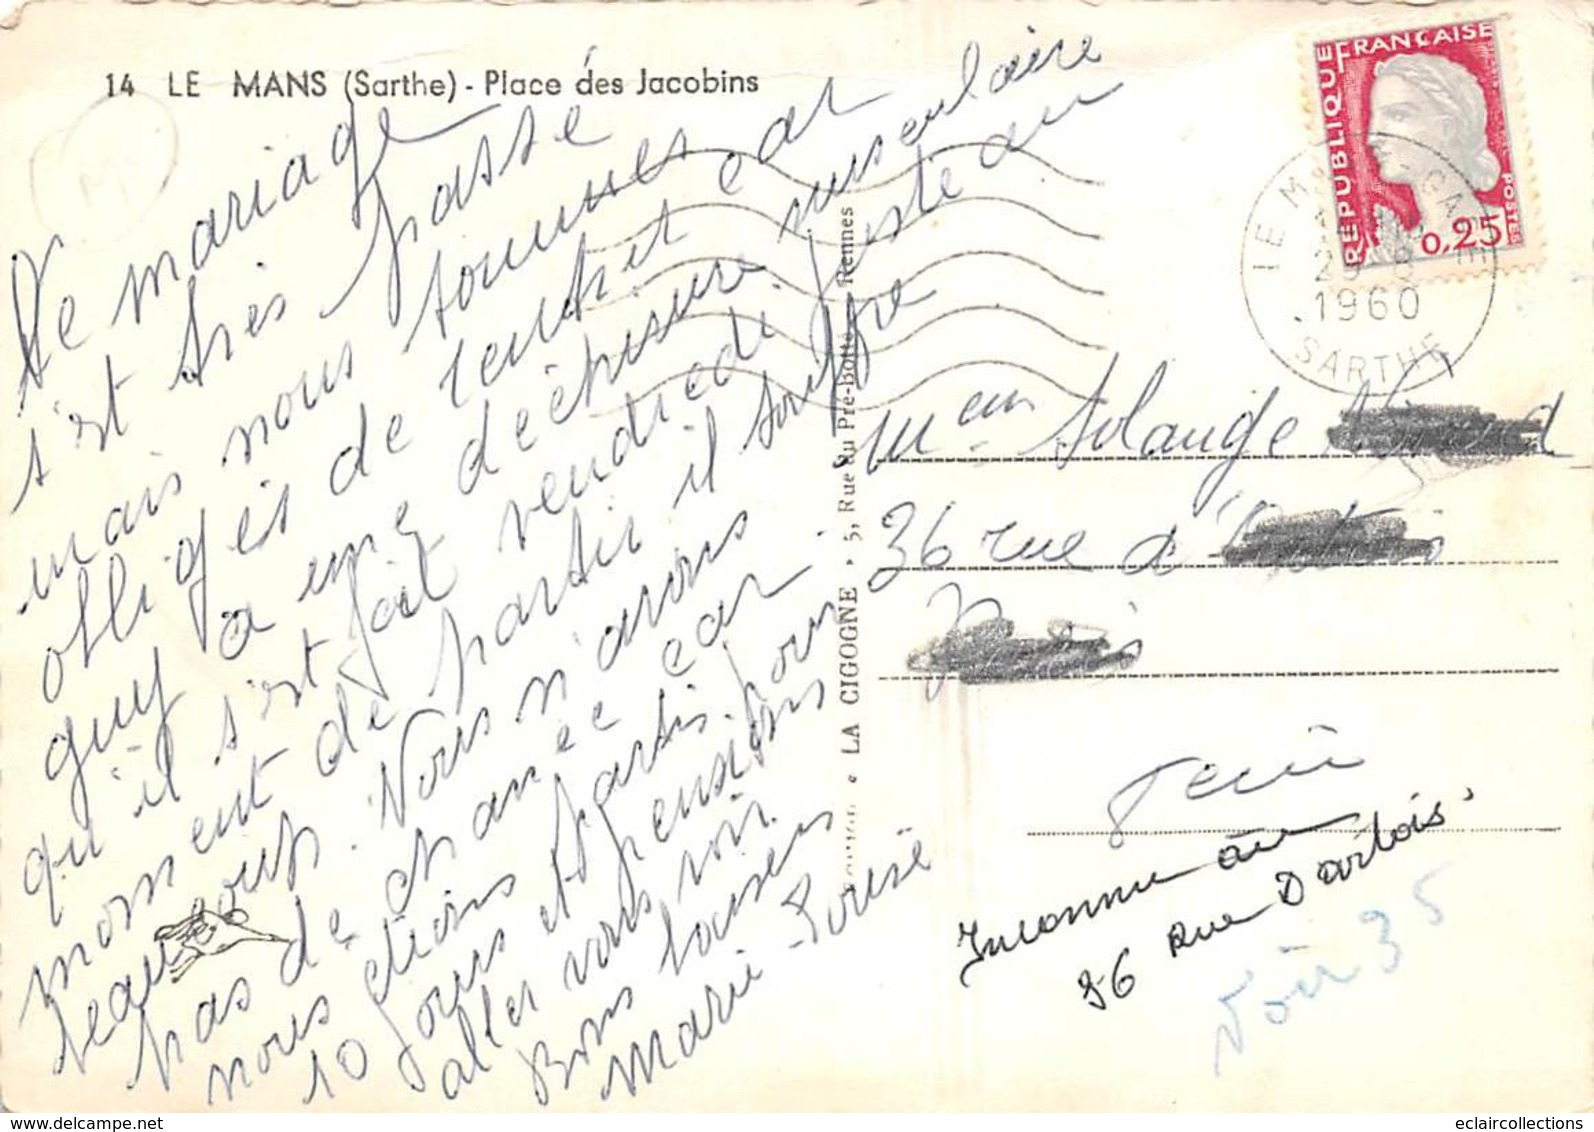 14 LE MANS (Sarthe) - Place des Jacobins
Le mariage
s'est très passé
mais nous sommes
obligés de rentrer car
guy a une déchirure musculaire
qu'il s'est fait vendredi juste au
moment de partir il souffre
beaucoup. Nous n'avons
pas de chance car
nous étions partis pour
10 jours et pensions
aller vous voir
Bons baisers
Marie-Louise
LA CIGOGNE • 5, Rue du Pré-Botté - Rennes
RÉPUBLIQUE FRANÇAISE
POSTES
0,25
LE MANS-GARE
1960
SARTHE
Solange
36 rue d'
Inconnu au
36 Rue D'artois
Voir 35
M
eclaircollections